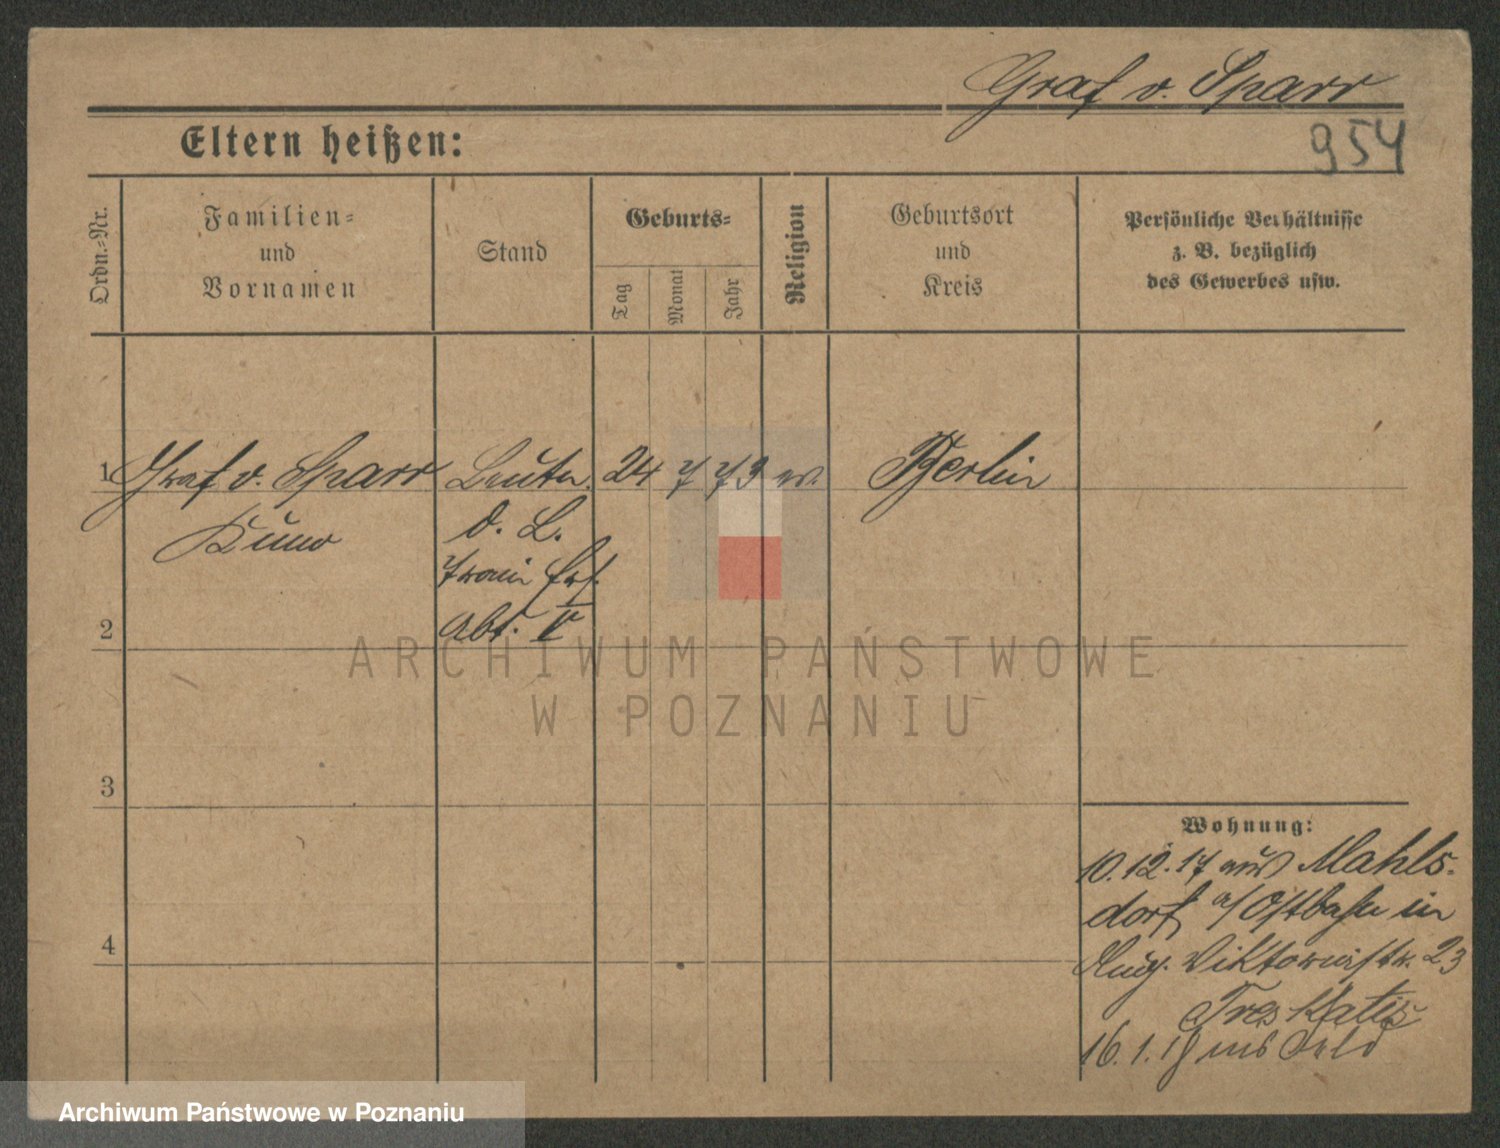 Graf v. Sparr
954
Eltern heißen:
Ordn.-Nr.
Familien-
und
Vornamen
Stand
Geburts-
Tag
Monat
Jahr
Religion
Geburtsort
und
Kreis
Persönliche Verhältnisse
z. B. bezüglich
des Gewerbes usw.
1 Graf v. Sparr Leutn. 24 7 73 ev. Berlin
Kuno d. L.
Train Ers.
Abt. V
2
3
4
Wohnung:
10.12.17 aus Mahls-
dorf a/Ostbahn in
Aug. Viktoriastr. 23
16.1.18 ins Feld
ARCHIWUM PAŃSTWOWE
W POZNANIU
Archiwum Państwowe w Poznaniu